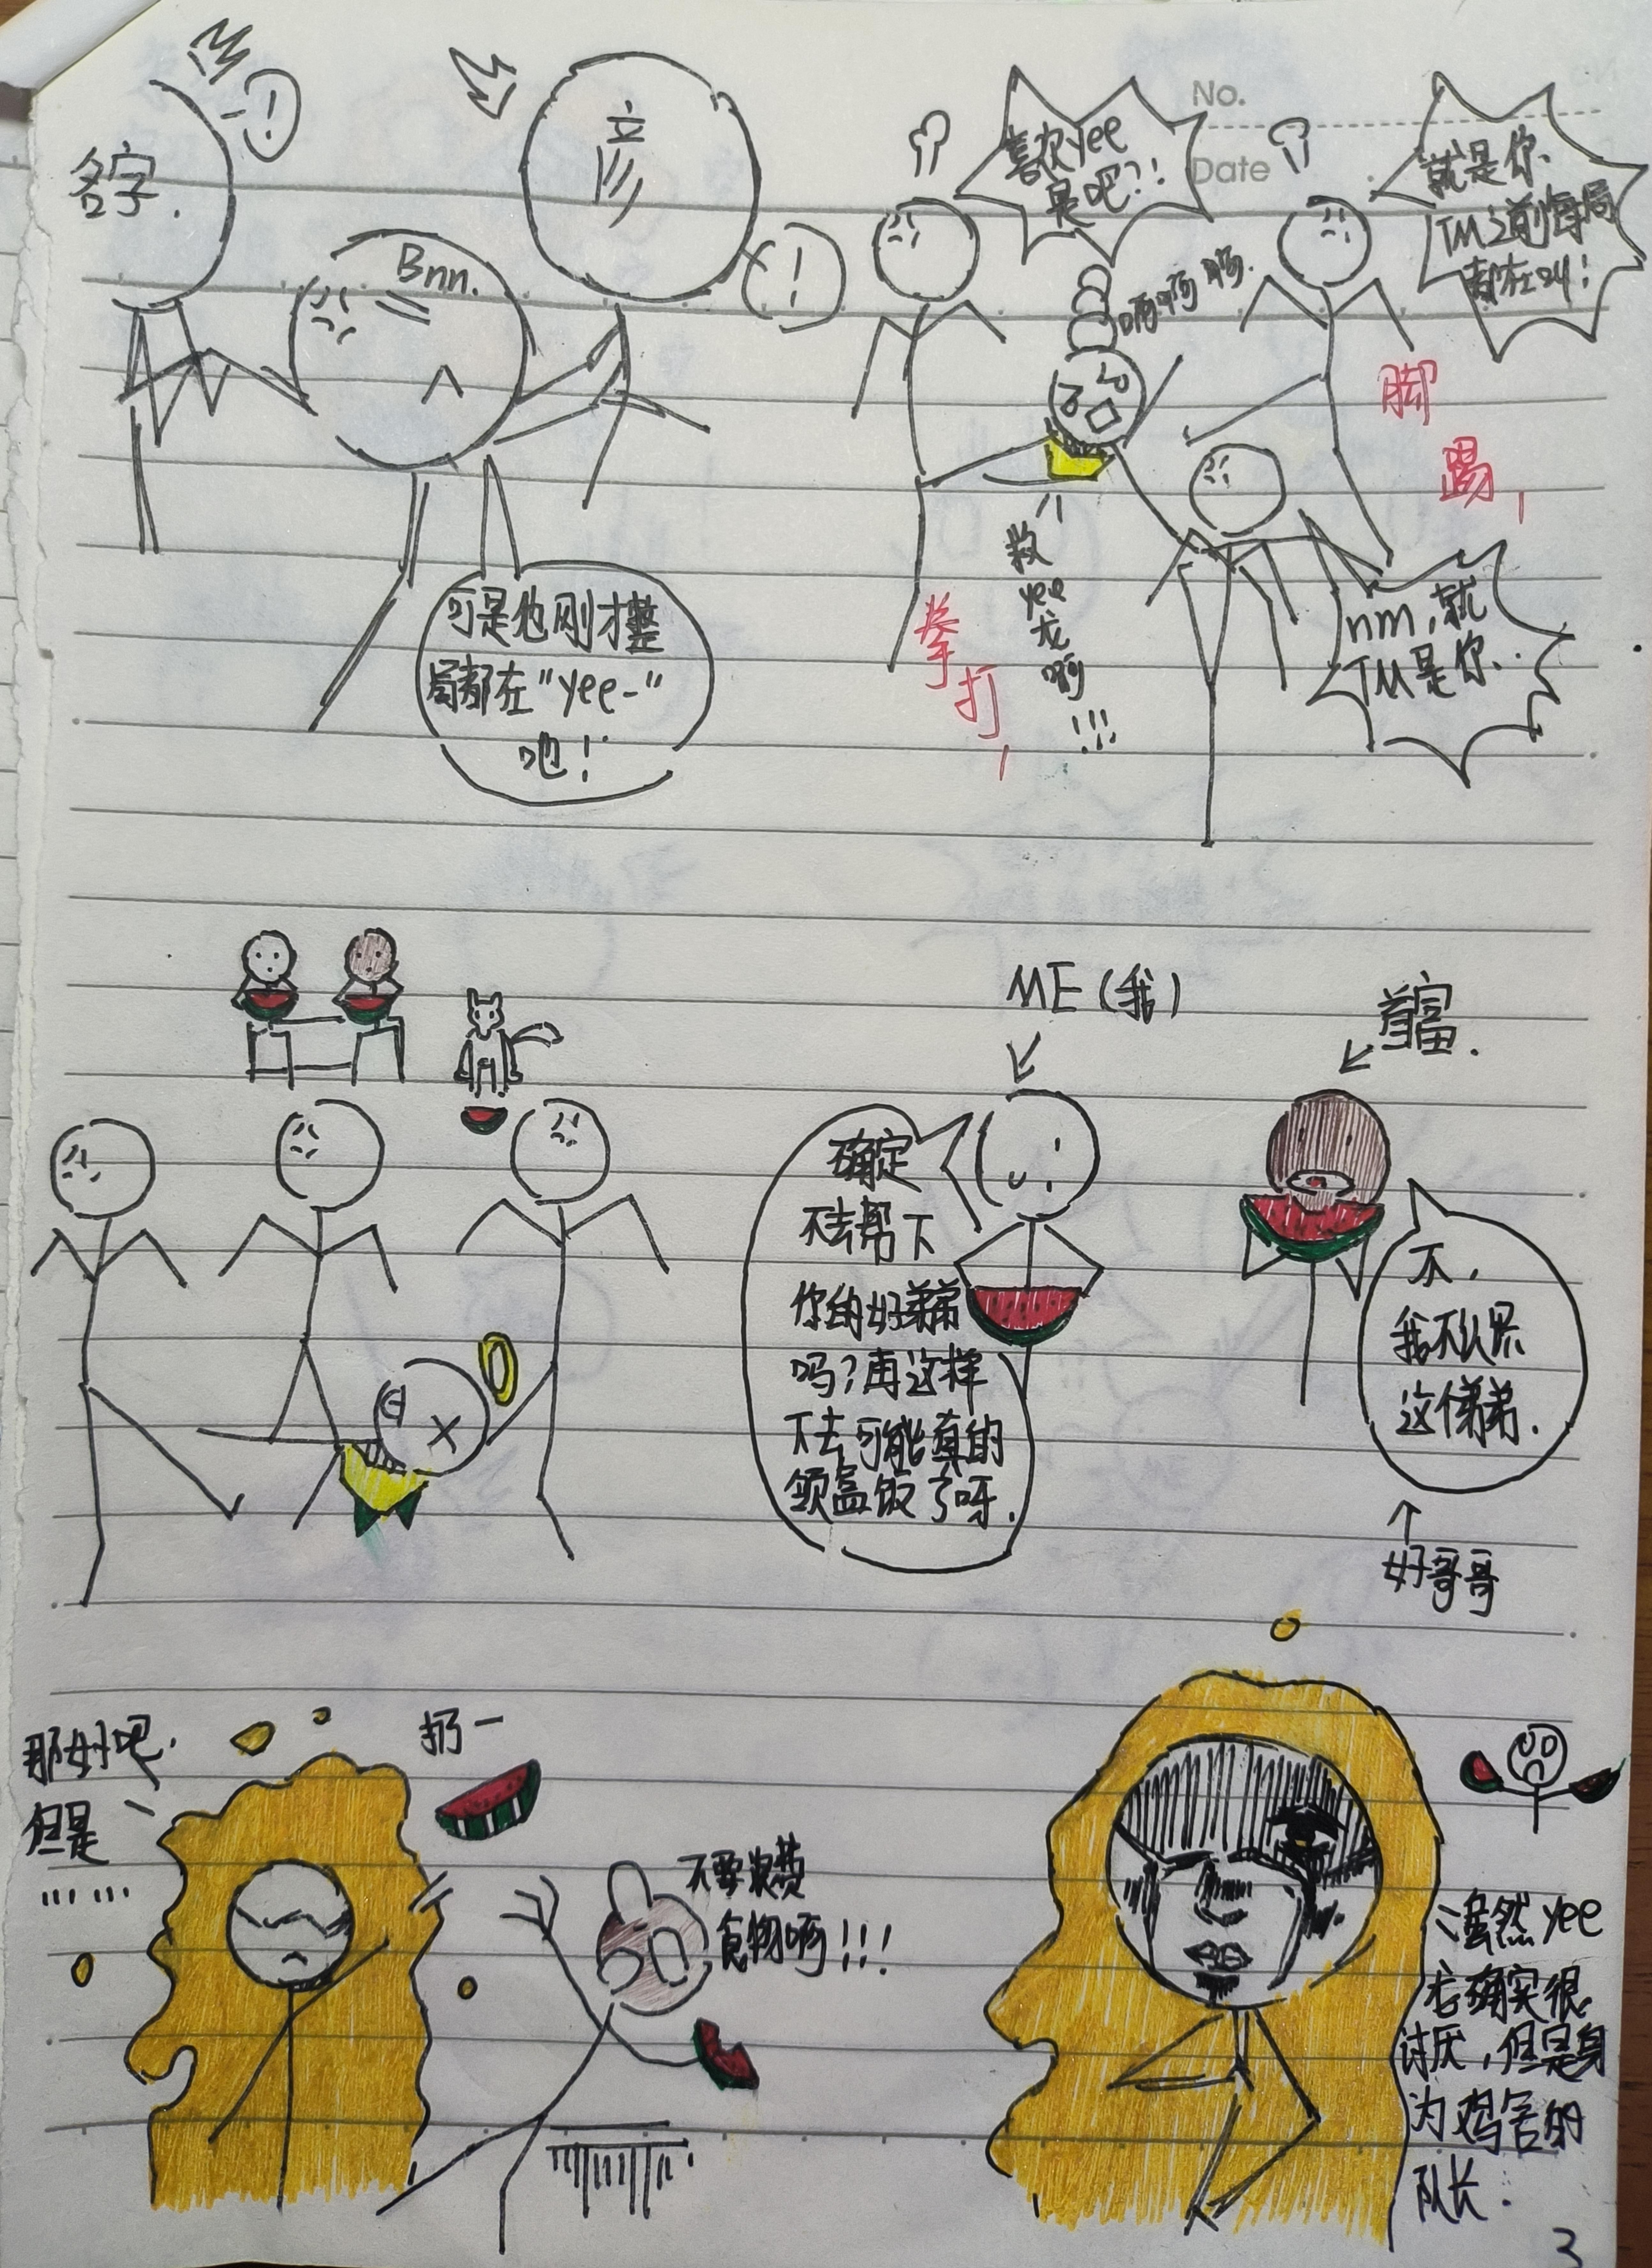 名字.
Bnn.
彦
可是他刚才整
局都在"yee-"
吔!
No.
Date
喜欢yee
是吧?!
啊啊啊.
就是你.
TM之前每局
都在叫!
脚
踢,
救
yee
龙
啊
!!!
拳
打,
nm,就
TM是你..
ME(我)
首富.
确定
不去帮下
你的好弟弟
吗?再这样
不去可能真的
领盒饭了呀.
不,
我不认识
这个弟弟.
好哥哥
那好吧.
但是
......
扔一
不要浪费
食物啊!!!
虽然yee
龙确实很
讨厌,但是身
为鸡窖的
队长.
3